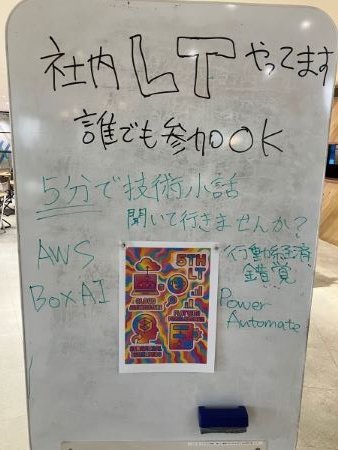 社内LTやってます
誰でも参加OK
5分で技術小話
聞いて行きませんか?
AWS
BoxAI
5TH
LT
行動経済
錯覚
Power
Automate